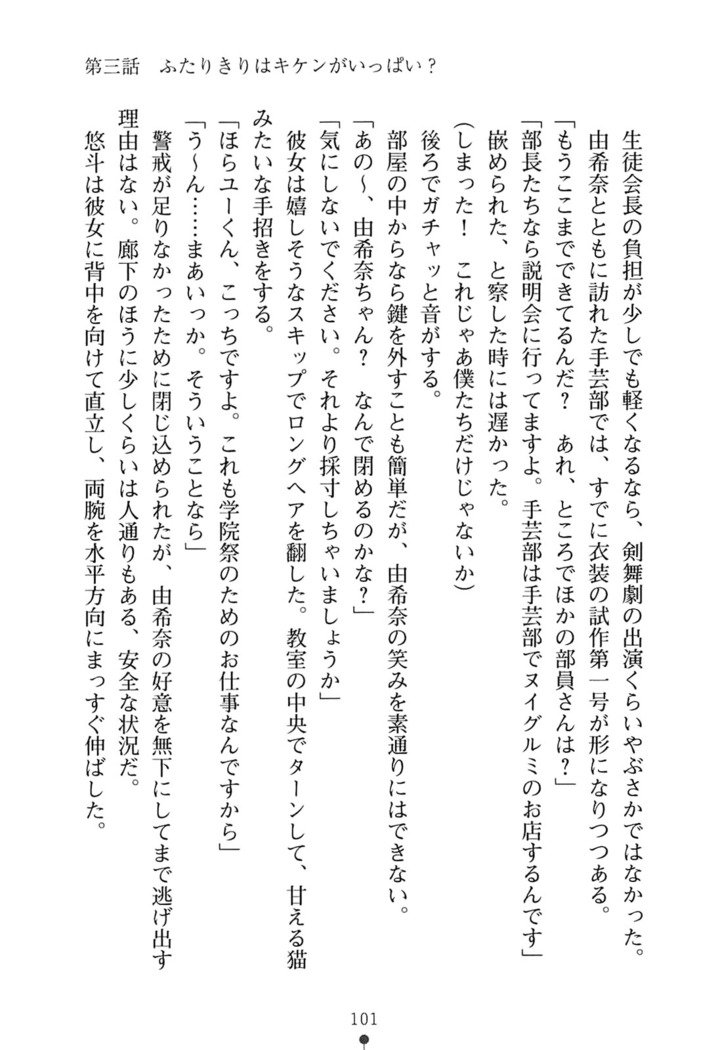 第三話　ふたりきりはキケンがいっぱい？
生徒会長の負担が少しでも軽くなるなら、剣舞劇の出演くらいやぶさかではなかった。
由希奈とともに訪れた手芸部では、すでに衣装の試作第一号が形になりつつある。
「もうここまでできてるんだ？　あれ、ところでほかの部員さんは？」
「部長たちなら説明会に行ってますよ。手芸部は手芸部でヌイグルミのお店するんです」
嵌められた、と察した時には遅かった。
(しまった！　これじゃあ僕たちだけじゃないか)
後ろでガチャッと音がする。
部屋の中からなら鍵を外すことも簡単だが、由希奈の笑みを素通りにはできない。
「あの～、由希奈ちゃん？　なんで閉めるのかな？」
「気にしないでください。それより採寸しちゃいましょうか」
彼女は嬉しそうなスキップでロングヘアを翻した。教室の中央でターンして、甘える猫
みたいな手招きをする。
「ほらユーくん、こっちですよ。これも学院祭のためのお仕事なんですから」
「う～ん……まあいっか。そういうことなら」
警戒が足りなかったために閉じ込められたが、由希奈の好意を無下にしてまで逃げ出す
理由はない。廊下のほうに少しくらいは人通りもある、安全な状況だ。
悠斗は彼女に背中を向けて直立し、両腕を水平方向にまっすぐ伸ばした。
101